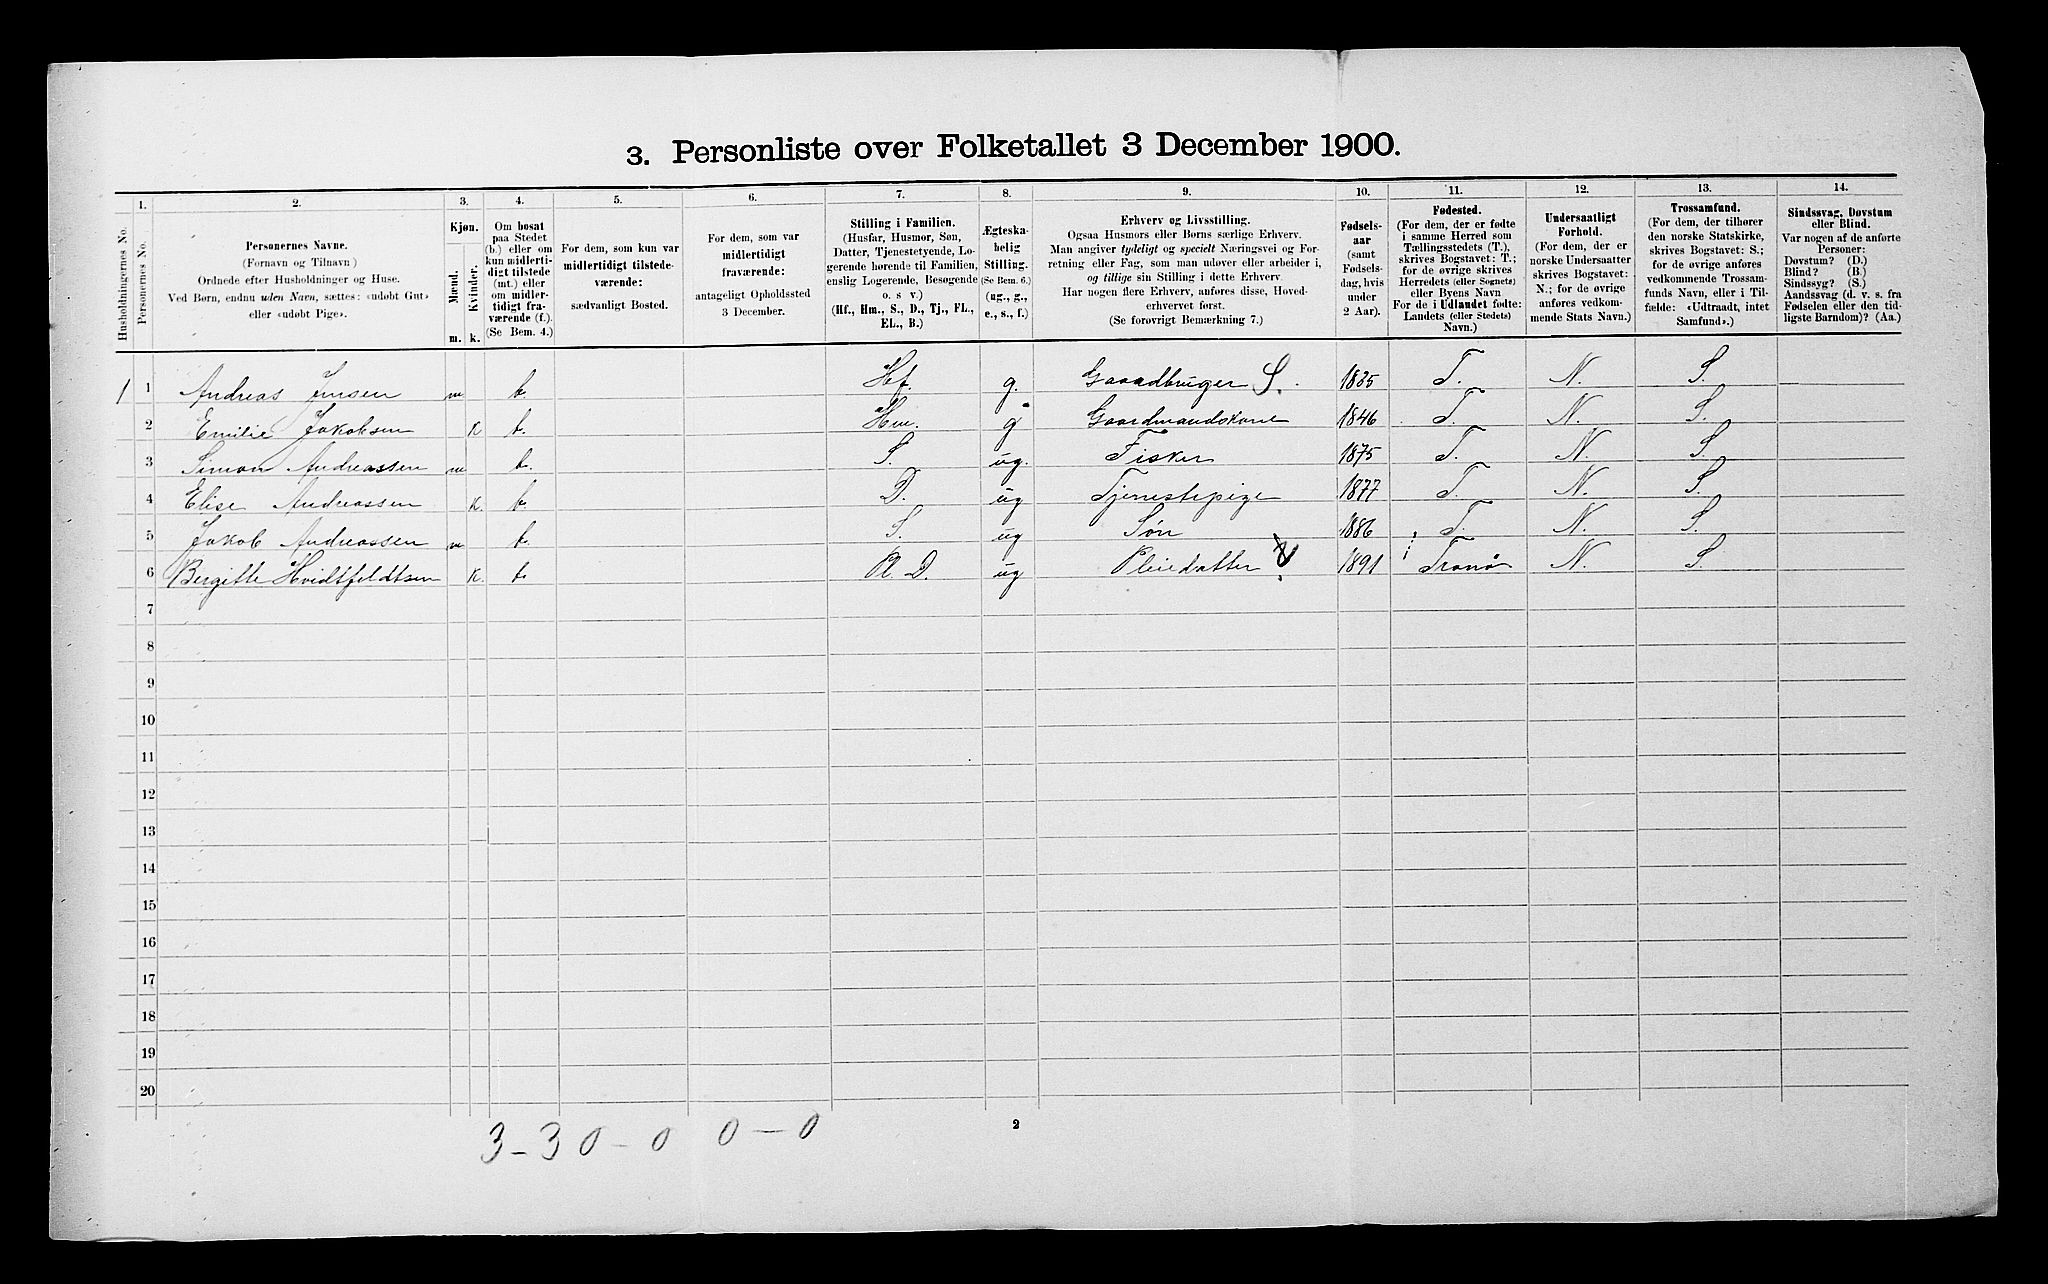 3. Personliste over Folketallet 3 December 1900.
1. 2. 3. 4. 5. 6. 7. 8. 9. 10. 11. 12. 13. 14.
Husholdningernes No.
Personernes No.
Personernes Navne.
(Fornavn og Tilnavn)
Ordnede efter Husholdninger og Huse.
Ved Børn, endnu uden Navn, sættes: «udøbt Gut»
eller «udøbt Pige».
Kjøn.
Mænd.
Kvinder.
m. k.
Om bosat
paa Stedet
(b.) eller om
kun midlerti-
digt tilstede
(mt.) eller
om midler-
tidigt fra-
værende (f.).
(Se Bem. 4.)
For dem, som kun var
midlertidigt tilstede-
værende:
sædvanligt Bosted.
For dem, som var
midlertidigt
fraværende:
antageligt Opholdssted
3 December.
Stilling i Familien.
(Husfar, Husmor, Søn,
Datter, Tjenestetyende, Lo-
gerende hørende til Familien,
enslig Logerende, Besøgende
o. s v.)
(Hf., Hm., S., D., Tj., FL.,
EL., B.)
Ægteska-
belig
Stilling.
(Se Bem. 6.)
(ug., g.,
e., s., f.)
Erhverv og Livsstilling.
Ogsaa Husmors eller Børns særlige Erhverv.
Man angiver tydeligt og specielt Næringsvei og For-
retning eller Fag, som man udøver eller arbeider i,
og tillige sin Stilling i dette Erhverv.
Har nogen flere Erhverv, anføres disse, Hoved-
erhvervet først.
(Se forøvrigt Bemærkning 7.)
Fødsels-
aar
(samt
Fødsels-
dag, hvis
under
2 Aar).
Fødested.
(For dem, der er fødte
i samme Herred som
Tællingsstedets (T.),
skrives Bogstavet: T.;
for de øvrige skrives
Herredets (eller Sognets)
eller Byens Navn
For de i Udlandet fødte:
Landets (eller Stedets)
Navn.)
Undersaatligt
Forhold.
(For dem, der er
norske Undersaatter
skrives Bogstavet:
N.; for de øvrige
anføres vedkom-
mende Stats Navn.)
Trossamfund.
(For dem, der tilhører
den norske Statskirke,
skrives Bogstavet: S.;
for de øvrige anføres
vedkommende Trossam-
funds Navn, eller i Til-
fælde: «Udtraadt, intet
Samfund».)
Sindssvag, Døvstum
eller Blind.
Var nogen af de anførte
Personer:
Døvstum? (D.)
Blind? (B.)
Sindssyg? (S.)
Aandssvag (d. v. s. fra
Fødselen eller den tid-
ligste Barndom)? (Aa.)
1 1 Andreas Jensen m b. Hf. g. Gaardbruger S. 1835 T. N. S.
2 Emilie Jakobsen k b. Hm. g Gaardmandskone 1846 T. N. S.
3 Simon Andreassen m b. S. ug. Fisker 1875 T. N. S.
4 Elise Andreassen k. b. D. ug Tjenestepige 1877 T. N. S.
5 Jakob Andreassen m b. S. ug Søn 1886 T. N. S.
6 Bergitte Hvidtfeldtsen k. b. Pl. D. ug Pleiedatter 1891 Tranø N. S.
7
8
9
10
11
12
13
14
15
16
17
18
19
20
3-3 0-0 0-0
2